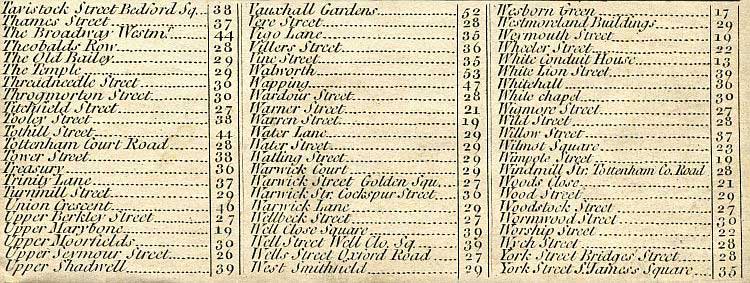 Tavistock Street Bedford Sq. 38
Thames Street 37
The Broadway Westmr. 44
Theobalds Row 28
The Old Bailey 29
The Temple 29
Threadneedle Street 30
Throgmorton Street 30
Titchfield Street 27
Tooley Street 38
Tothill Street 44
Tottenham Court Road 28
Tower Street 38
Treasury 36
Trinity Lane 37
Turnmill Street 29
Union Crescent 46
Upper Berkley Street 27
Upper Marybone 19
Upper Moorfields 30
Upper Seymour Street 26
Upper Shadwell 39
Vauxhall Gardens 52
Vere Street 28
Vigo Lane 35
Villers Street 36
Vine Street 35
Walworth 53
Wapping 47
Wardour Street 28
Warner Street 21
Warren Street 19
Water Lane 29
Water Street 29
Watling Street 29
Warwick Court 29
Warwick Street Golden Squ. 27
Warwick Str. Cockspur Street 36
Warwick Lane 29
Welbeck Street 27
Well Close Square 39
Well Street Well Clo. Sq. 39
Wells Street Oxford Road 27
West Smithfield 29
Wesborn Green 17
Westmoreland Buildings 29
Weymouth Street 19
Wheeler Street 22
White Conduit House 13
White Lion Street 39
Whitehall 36
White chapel 30
Wigmore Street 27
Wild Street 28
Willow Street 37
Wilmot Square 23
Wimpole Street 19
Windmill Str. Tottenham Co. Road 28
Woods Close 21
Wood Street 29
Woodstock Street 27
Wormwood Street 30
Worship Street 22
Wych Street 28
York Street Bridges Street 28
York Street St. Jamess Square 35